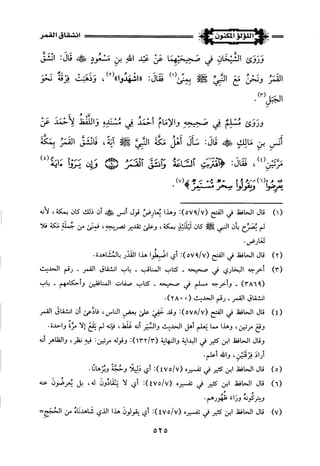 انشقاق القمر
اللؤلؤ المكنون
وَرَوَى الشَّيْخَانِ فِي صَحِيحَيْهِمَا عَنْ عَبْدِ اللهِ بنِ مَسْعُودٍ ﷺ قَالَ: انْشَقَّ
القَمَرُ وَنَحْنُ مَعَ النَّبِيِّ ﷺ بِمِنًى(١) فَقَالَ: «اشْهَدُوا»(٢)، وَذَهَبَتْ فِرْقَةٌ نَحْوَ
الجَبَلِ(٣).
وَرَوَى مُسْلِمٌ فِي صَحِيحِهِ وَالإِمَامُ أَحْمَدُ فِي مُسْنَدِهِ وَاللَّفْظُ لِأَحْمَدَ عَنْ
أَنَسِ بنِ مَالِكٍ قَالَ: سَأَلَ أَهْلُ مَكَّةَ النَّبِيَّ ﷺ آيَةً، فَانْشَقَّ القَمَرُ بِمَكَّةَ
مَرَّتَيْنِ(٤)، فَقَالَ: ﴿اقْتَرَبَتِ السَّاعَةُ وَانشَقَّ الْقَمَرُ وَإِن يَرَوْا آيَةً(٥)
يُعْرِضُوا(٦) وَيَقُولُوا سِحْرٌ مُّسْتَمِرٌّ﴾(٧).
(١) قال الحافظ ابن كثير في الفتح (٥٧٩/٧): وهذا يُعارضُ قول أنس أن ذلك كان بمكة، لأنه
لم يُصَرِّح بأن النبي ﷺ كان لَيْلَتَئِذٍ بمكة، وعلى تقدير تصريحِهِ، فمِنى من جُملَةِ مَكة فلا
تَعَارض.
(٢) قال الحافظ في الفتح (٥٧٩/٧): أي اضْبِطُوا هذا القَدْر بالمُشَاهدة.
(٣) أخرجه البخاري في صحيحه - كتاب المناقب - باب انشقاق القمر - رقم الحديث
(٣٨٦٩) - وأخرجه مسلم في صحيحه - كتاب صفات المنافقين وأحكامهم - باب
انشقاق القمر - رقم الحديث (٢٨٠٠).
(٤) قال الحافظ في الفتح (٥٧٨/٧): وقد خَفِيَ على بعضِ الناس، فادَّعىٰ أن انشقاقَ القمرِ
وقعَ مرتين، وهذا مما يعلم أهل الحديث والسِّيَرِ أنه غَلَط، فإنه لم يَقَعْ إلا مرَّةً واحدة.
وقال الحافظ ابن كثير في البداية والنهاية (١٣٢/٣): وقوله مرتين: فيه نظر، والظاهر أنه
أرادَ فِرْقَتَيْنِ، والله أعلم.
(٥) قال الحافظ ابن كثير في تفسيره (٤٧٥/٧): أي دَلِيلًا وحُجَّةً وبُرْهانًا.
(٦) قال الحافظ ابن كثير في تفسيره (٤٧٥/٧): أي لا يَنْقَادُونَ له، بل يُعرضُونَ عنه
ويتركُونَهُ وَرَاءَ ظُهُورِهم.
(٧) قال الحافظ ابن كثير في تفسيره (٤٧٥/٧): أي يقولونَ هذا الذي شاهَدْنَاهُ من الحُجَجِ=
٥٢٥